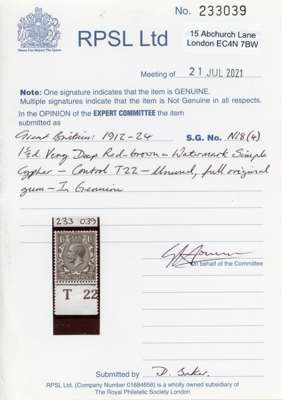 No. 233039
RPSL Ltd
15 Abchurch Lane
London EC4N 7BW
Meeting of 21 JUL 2021
Note: One signature indicates that the item is GENUINE.
Multiple signatures indicate that the item is Not Genuine in all respects.
In the OPINION of the EXPERT COMMITTEE the item
submitted as
Great Britain: 1912-24 S.G. No. N18(4)
1½d Very Deep Red-brown - Watermark Simple
Cypher - Control T22 - Unused, full original
gum - Is Genuine
233 039
T 22
on behalf of the Committee
Submitted by D. Baker.
RPSL Ltd. (Company Number 01684658) is a wholly owned subsidiary of
The Royal Philatelic Society London